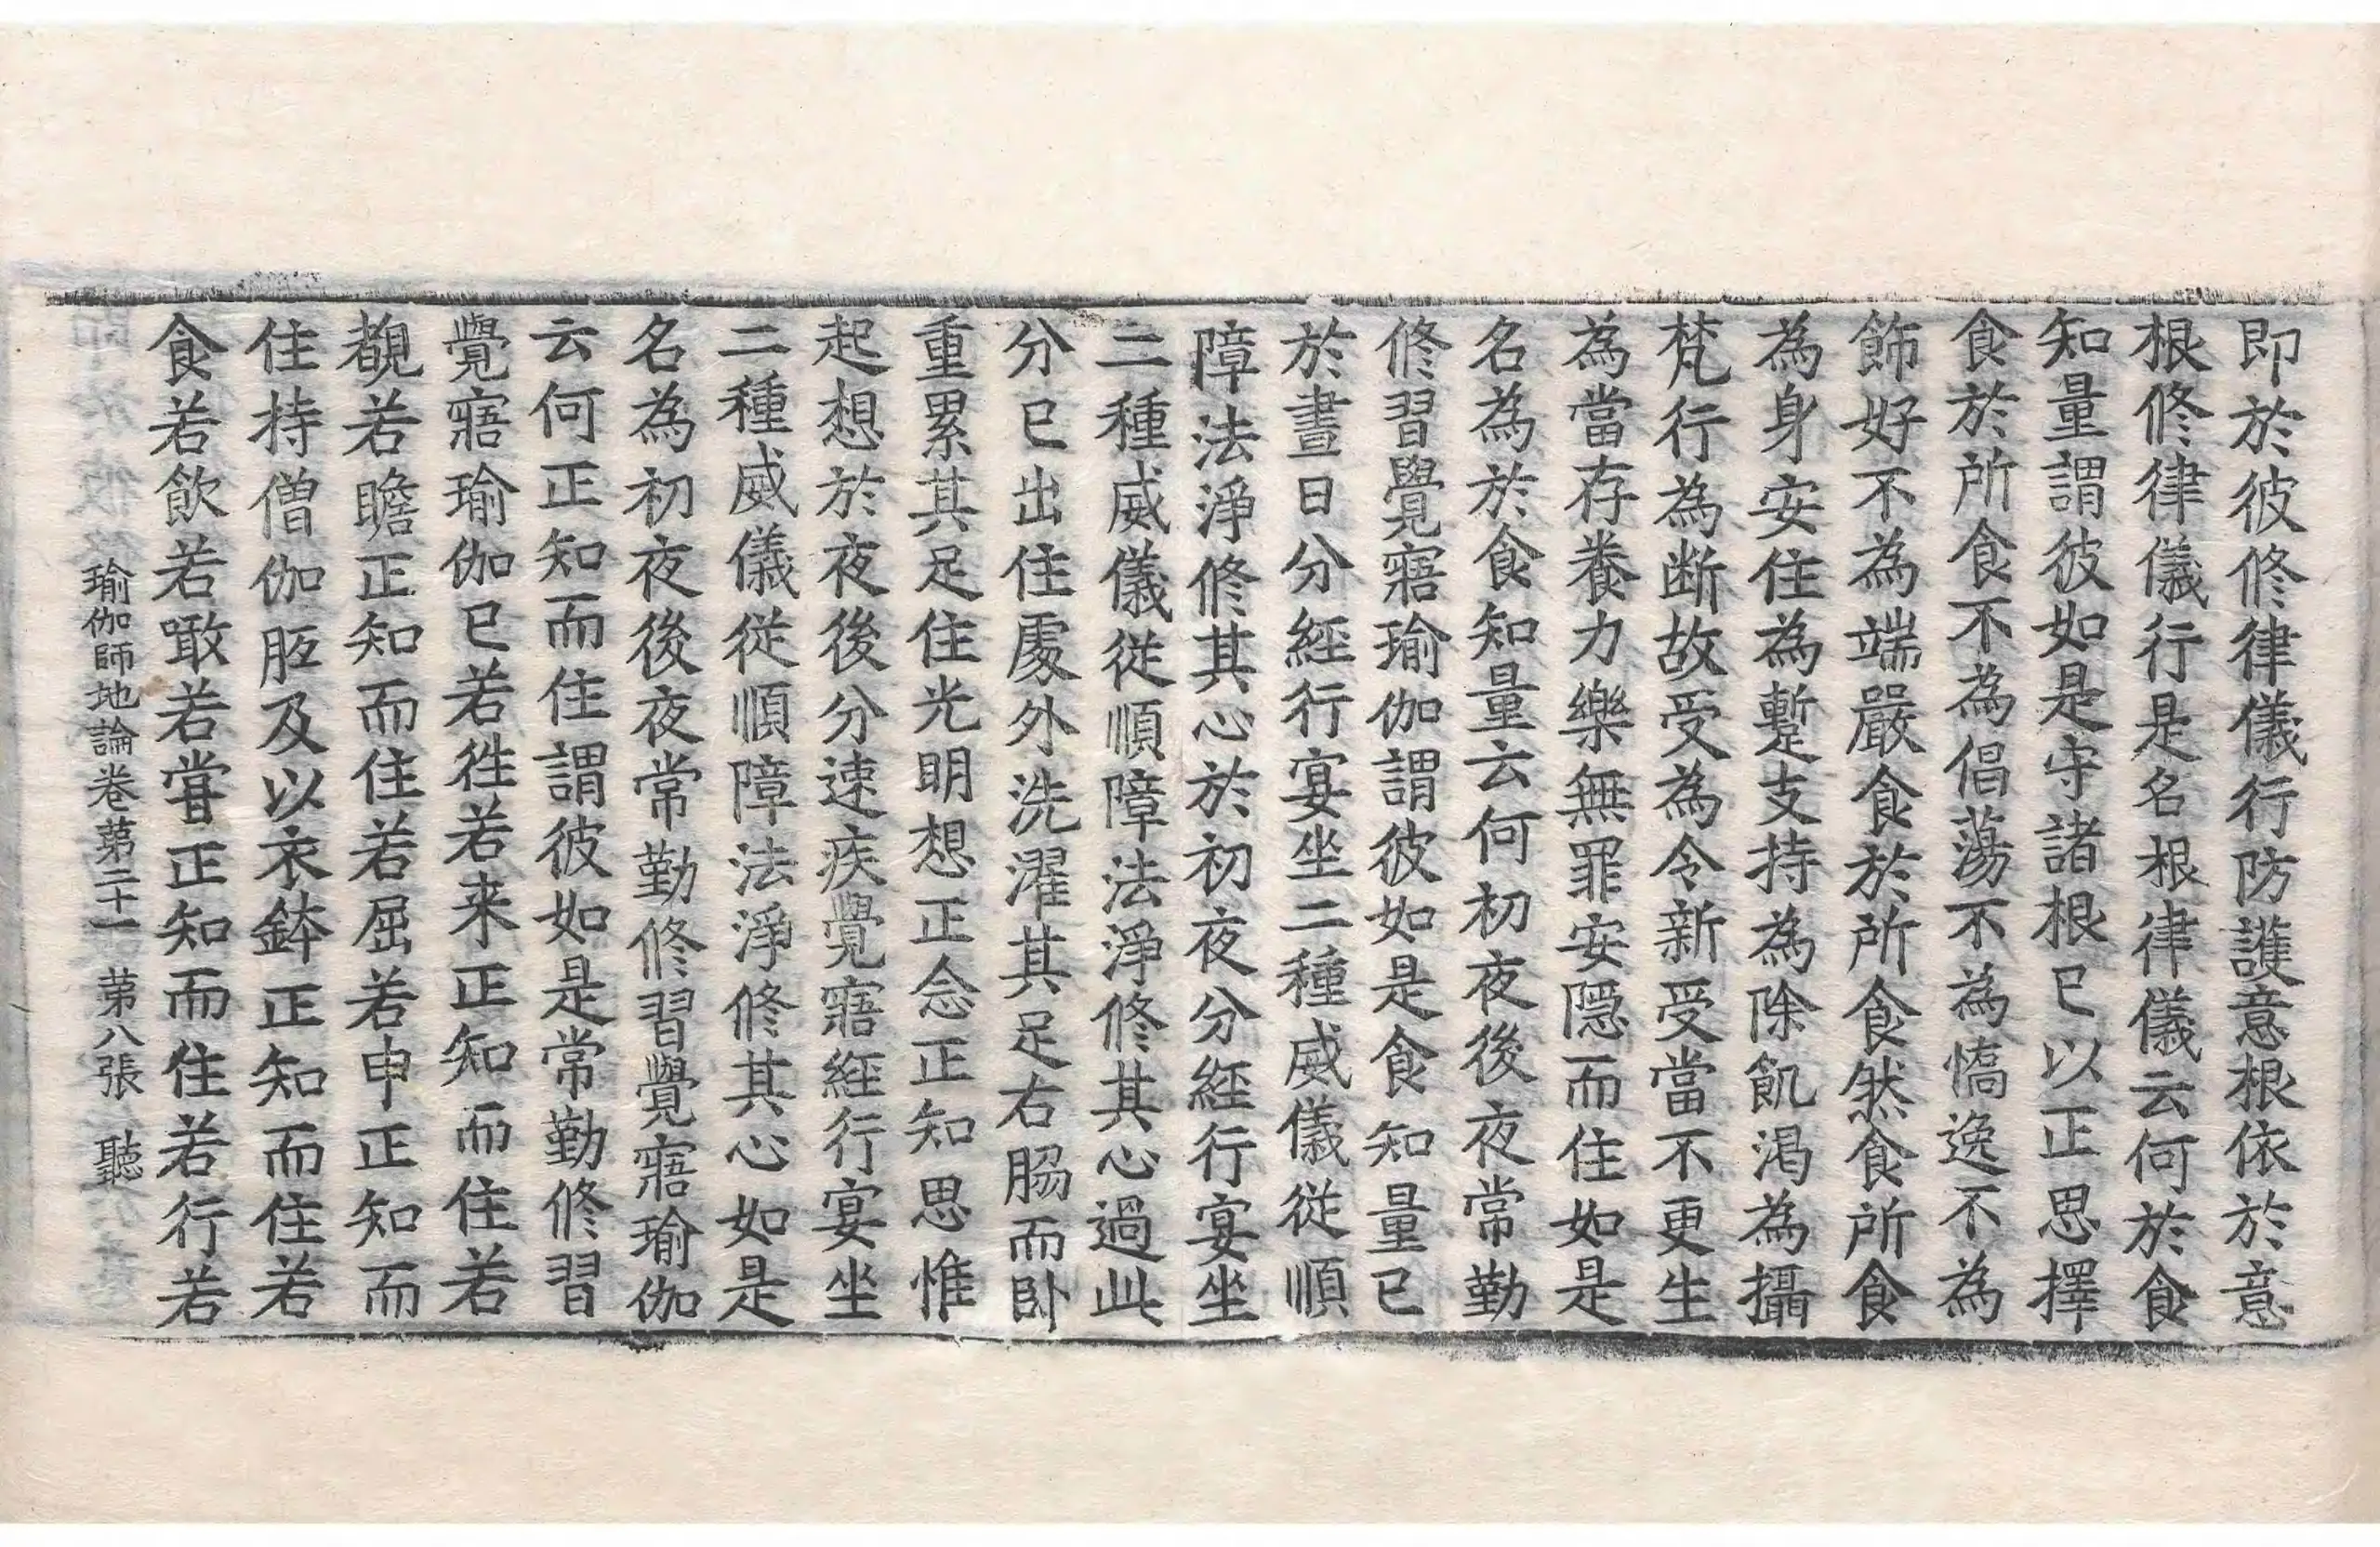 即於彼修律儀行防護意根依於意
根修律儀行是名根律儀云何於食
知量謂彼如是守諸根已以正思擇
食於所食不為倡蕩不為憍逸不為
飾好不為端嚴食於所食然食所食
為身安住為暫支持為除飢渴為攝
梵行為断故受為令新受當不更生
為當存養力樂無罪安隱而住如是
名為於食知量云何初夜後夜常勤
修習覺寤瑜伽謂彼如是食知量已
於晝日分經行宴坐二種威儀從順
障法淨修其心於初夜分經行宴坐
二種威儀從順障法淨修其心過此
分已出住處外洗濯其足右脇而卧
重累其足住光明想正念正知思惟
起想於夜後分速疾覺寤經行宴坐
二種威儀從順障法淨修其心如是
名為初夜後夜常勤修習覺寤瑜伽
云何正知而住謂彼如是常勤修習
覺寤瑜伽已若徃若来正知而住若
覩若瞻正知而住若屈若申正知而
住持僧伽胝及以衣鉢正知而住若
食若飲若噉若甞正知而住若行若
瑜伽師地論卷第二十一 第八張 聽